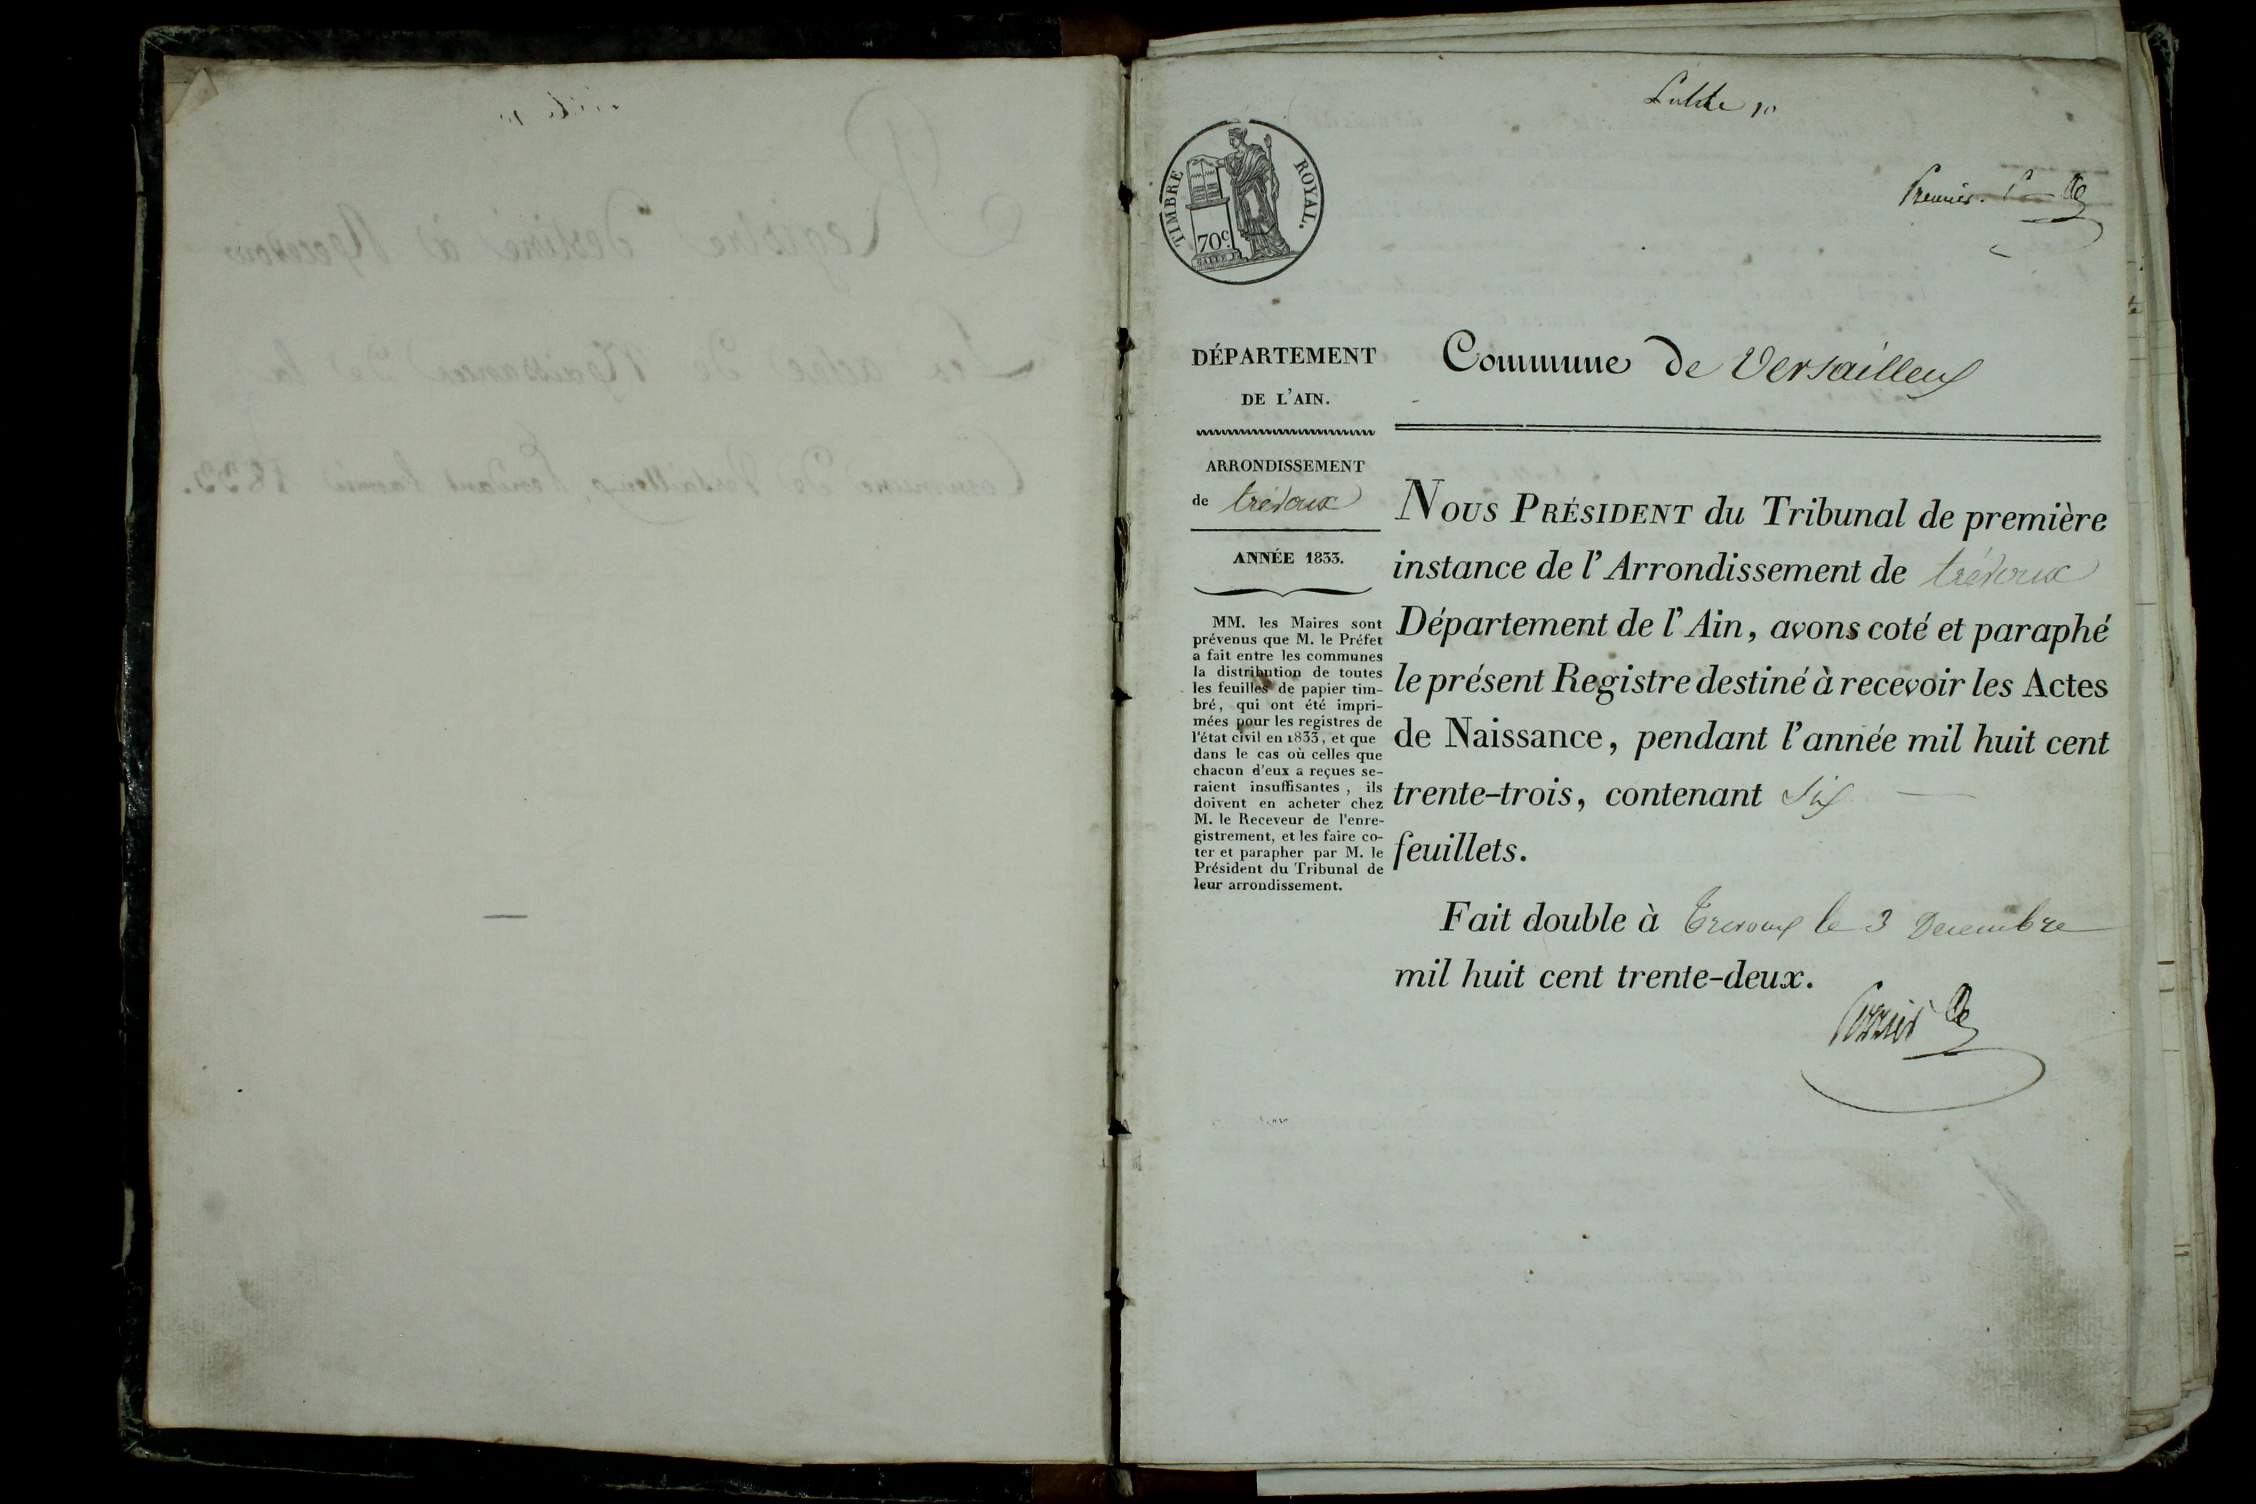 Registre destiné à Recevoir
Les actes de Naissances de la
Commune de Versailleux pendant l'année 1833.
TIMBRE ROYAL.
70c
Premier.
DÉPARTEMENT
DE L'AIN.
ARRONDISSEMENT
de trévoux
ANNÉE 1833.
MM. les Maires sont
prévenus que M. le Préfet
a fait entre les communes
la distribution de toutes
les feuilles de papier tim-
bré, qui ont été impri-
mées pour les registres de
l'état civil en 1833, et que
dans le cas où celles que
chacun d'eux a reçues se-
raient insuffisantes, ils
doivent en acheter chez
M. le Receveur de l'enre-
gistrement, et les faire co-
ter et parapher par M. le
Président du Tribunal de
leur arrondissement.
Commune de Versailleux
NOUS PRÉSIDENT du Tribunal de première
instance de l'Arrondissement de trévoux
Département de l'Ain, avons coté et paraphé
le présent Registre destiné à recevoir les Actes
de Naissance, pendant l'année mil huit cent
trente-trois, contenant Six
feuillets.
Fait double à Trevoux le 3 Decembre
mil huit cent trente-deux.